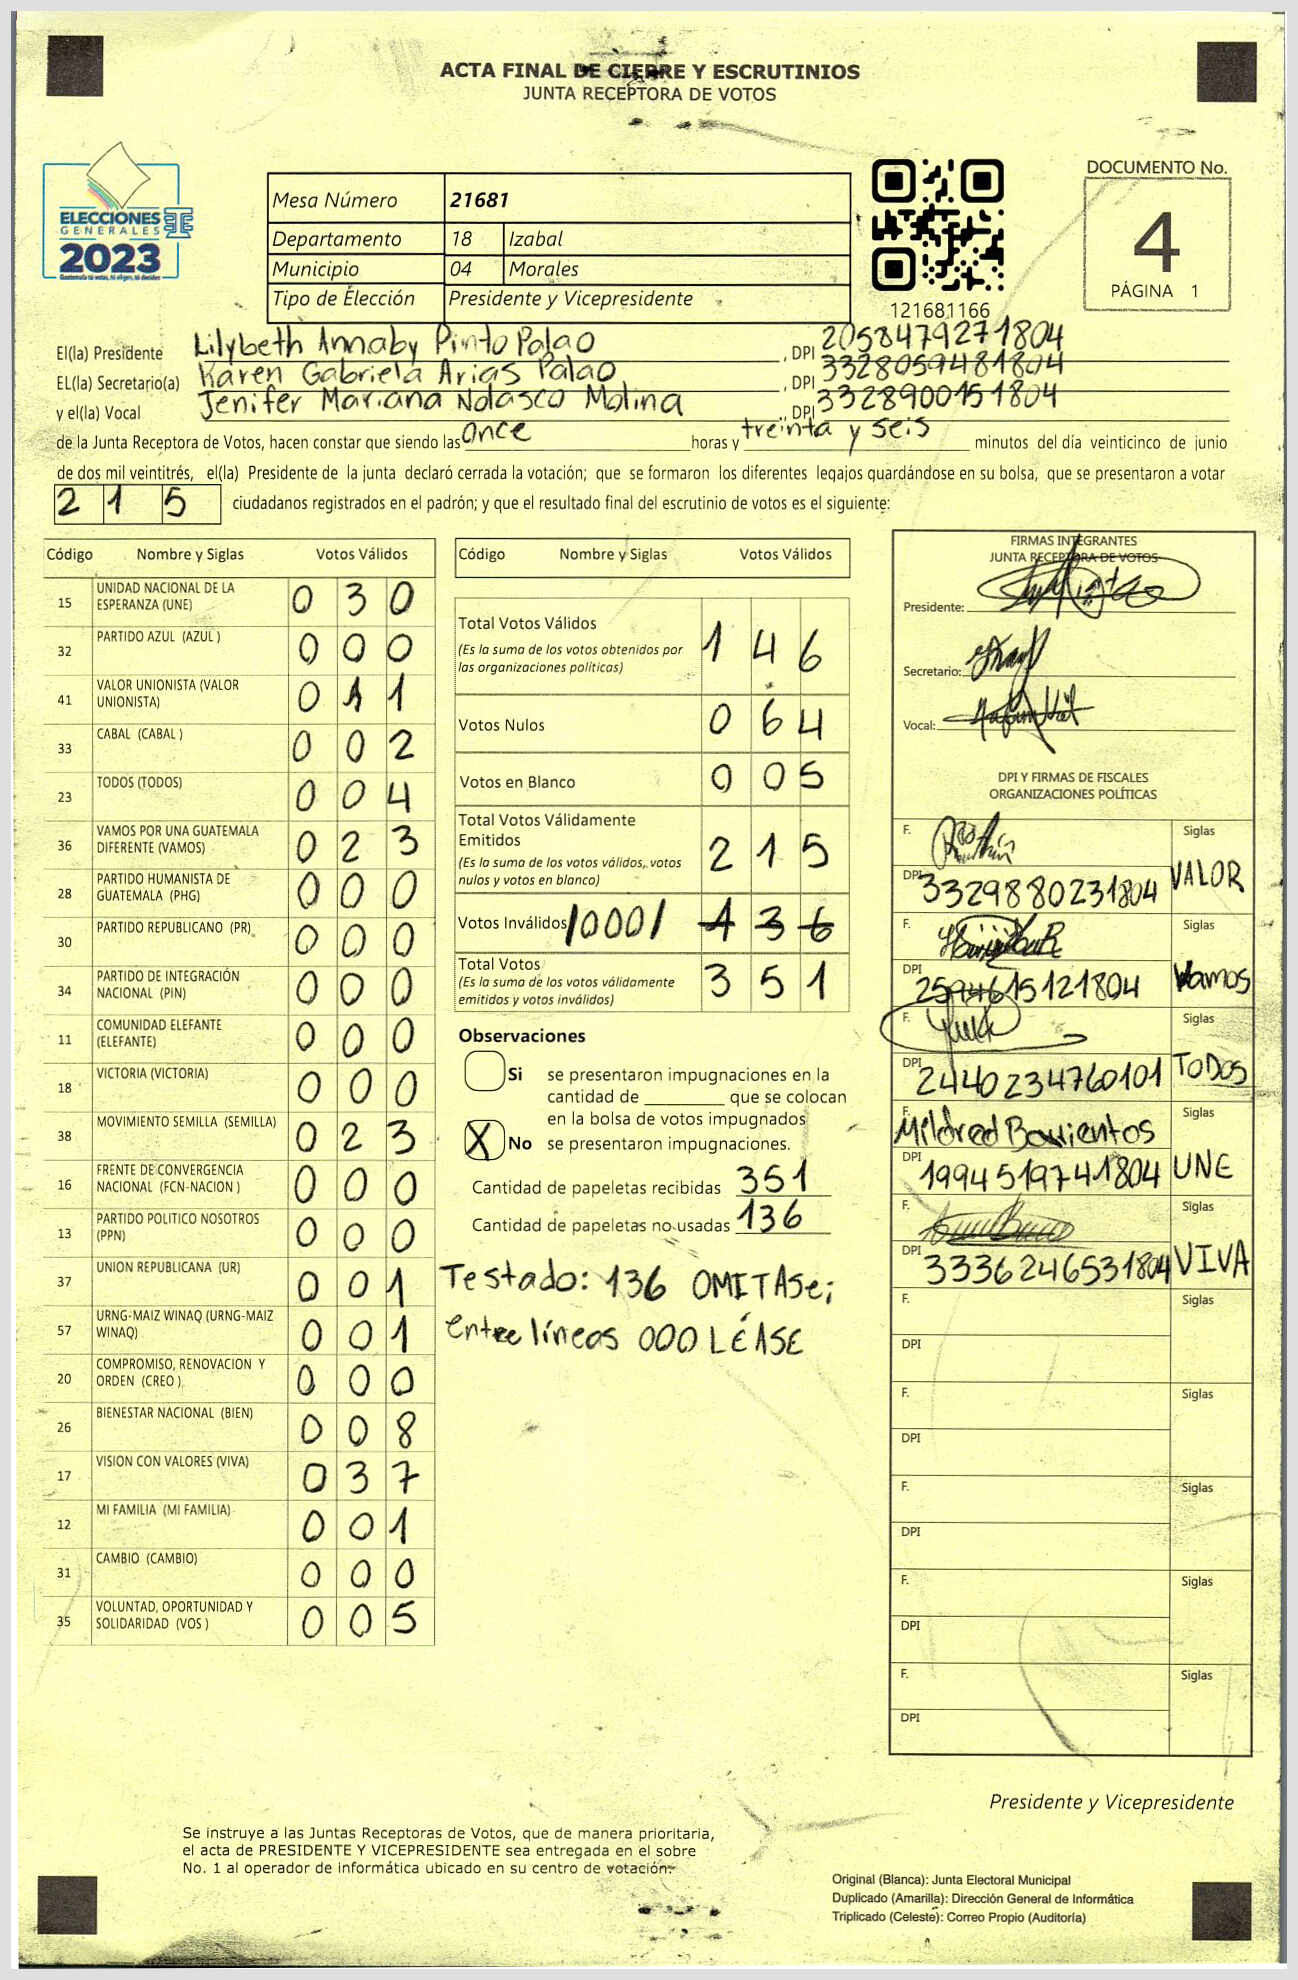 ACTA FINAL DE CIERRE Y ESCRUTINIOS
JUNTA RECEPTORA DE VOTOS
ELECCIONES
GENERALES
2023
Guatemala tú votas, tú eliges, tú decides
Mesa Número 21681
Departamento 18 Izabal
Municipio 04 Morales
Tipo de Elección Presidente y Vicepresidente
121681166
DOCUMENTO No.
4
PÁGINA 1
El(la) Presidente Lilybeth Annaby Pinto Palao , DPI 2058479271804
EL(la) Secretario(a) Karen Gabriela Arias Palao , DPI 3328059481804
y el(la) Vocal Jenifer Mariana Nolasco Molina , DPI 3328900151804
de la Junta Receptora de Votos, hacen constar que siendo las once horas y treinta y seis minutos del día veinticinco de junio
de dos mil veintitrés, el(la) Presidente de la junta declaró cerrada la votación; que se formaron los diferentes legajos guardándose en su bolsa, que se presentaron a votar
215 ciudadanos registrados en el padrón; y que el resultado final del escrutinio de votos es el siguiente:
Código Nombre y Siglas Votos Válidos
15 UNIDAD NACIONAL DE LA ESPERANZA (UNE) 0 3 0
32 PARTIDO AZUL (AZUL ) 0 0 0
41 VALOR UNIONISTA (VALOR UNIONISTA) 0 1 1
33 CABAL (CABAL ) 0 0 2
23 TODOS (TODOS) 0 0 4
36 VAMOS POR UNA GUATEMALA DIFERENTE (VAMOS) 0 2 3
28 PARTIDO HUMANISTA DE GUATEMALA (PHG) 0 0 0
30 PARTIDO REPUBLICANO (PR) 0 0 0
34 PARTIDO DE INTEGRACIÓN NACIONAL (PIN) 0 0 0
11 COMUNIDAD ELEFANTE (ELEFANTE) 0 0 0
18 VICTORIA (VICTORIA) 0 0 0
38 MOVIMIENTO SEMILLA (SEMILLA) 0 2 3
16 FRENTE DE CONVERGENCIA NACIONAL (FCN-NACION ) 0 0 0
13 PARTIDO POLITICO NOSOTROS (PPN) 0 0 0
37 UNION REPUBLICANA (UR) 0 0 1
57 URNG-MAIZ WINAQ (URNG-MAIZ WINAQ) 0 0 1
20 COMPROMISO, RENOVACION Y ORDEN (CREO ) 0 0 0
26 BIENESTAR NACIONAL (BIEN) 0 0 8
17 VISION CON VALORES (VIVA) 0 3 7
12 MI FAMILIA (MI FAMILIA) 0 0 1
31 CAMBIO (CAMBIO) 0 0 0
35 VOLUNTAD, OPORTUNIDAD Y SOLIDARIDAD (VOS ) 0 0 5
Código Nombre y Siglas Votos Válidos
Total Votos Válidos 1 4 6
(Es la suma de los votos obtenidos por
las organizaciones políticas)
Votos Nulos 0 6 4
Votos en Blanco 0 0 5
Total Votos Válidamente
Emitidos 2 1 5
(Es la suma de los votos válidos, votos
nulos y votos en blanco)
Votos Inválidos /000/ 1 3 6
Total Votos 3 5 1
(Es la suma de los votos válidamente
emitidos y votos inválidos)
Observaciones
Si se presentaron impugnaciones en la
cantidad de ________ que se colocan
en la bolsa de votos impugnados
X No se presentaron impugnaciones.
Cantidad de papeletas recibidas 351
Cantidad de papeletas no usadas 136
Testado: 136 OMITASE;
Entre líneas 000 LÉASE
FIRMAS INTEGRANTES
JUNTA RECEPTORA DE VOTOS
Presidente:
Secretario:
Vocal:
DPI Y FIRMAS DE FISCALES
ORGANIZACIONES POLÍTICAS
F. Siglas
DPI 3329880231804 VALOR
F. Siglas
DPI 2594615121804 Vamos
F. Siglas
DPI 2440234760101 TODOS
F. Mildred Barrientos Siglas
DPI 1994519741804 UNE
F. Siglas
DPI 3336246531804 VIVA
F. Siglas
DPI
F. Siglas
DPI
F. Siglas
DPI
F. Siglas
DPI
F. Siglas
DPI
Presidente y Vicepresidente
Se instruye a las Juntas Receptoras de Votos, que de manera prioritaria,
el acta de PRESIDENTE Y VICEPRESIDENTE sea entregada en el sobre
No. 1 al operador de informática ubicado en su centro de votación.
Original (Blanca): Junta Electoral Municipal
Duplicado (Amarilla): Dirección General de Informática
Triplicado (Celeste): Correo Propio (Auditoría)